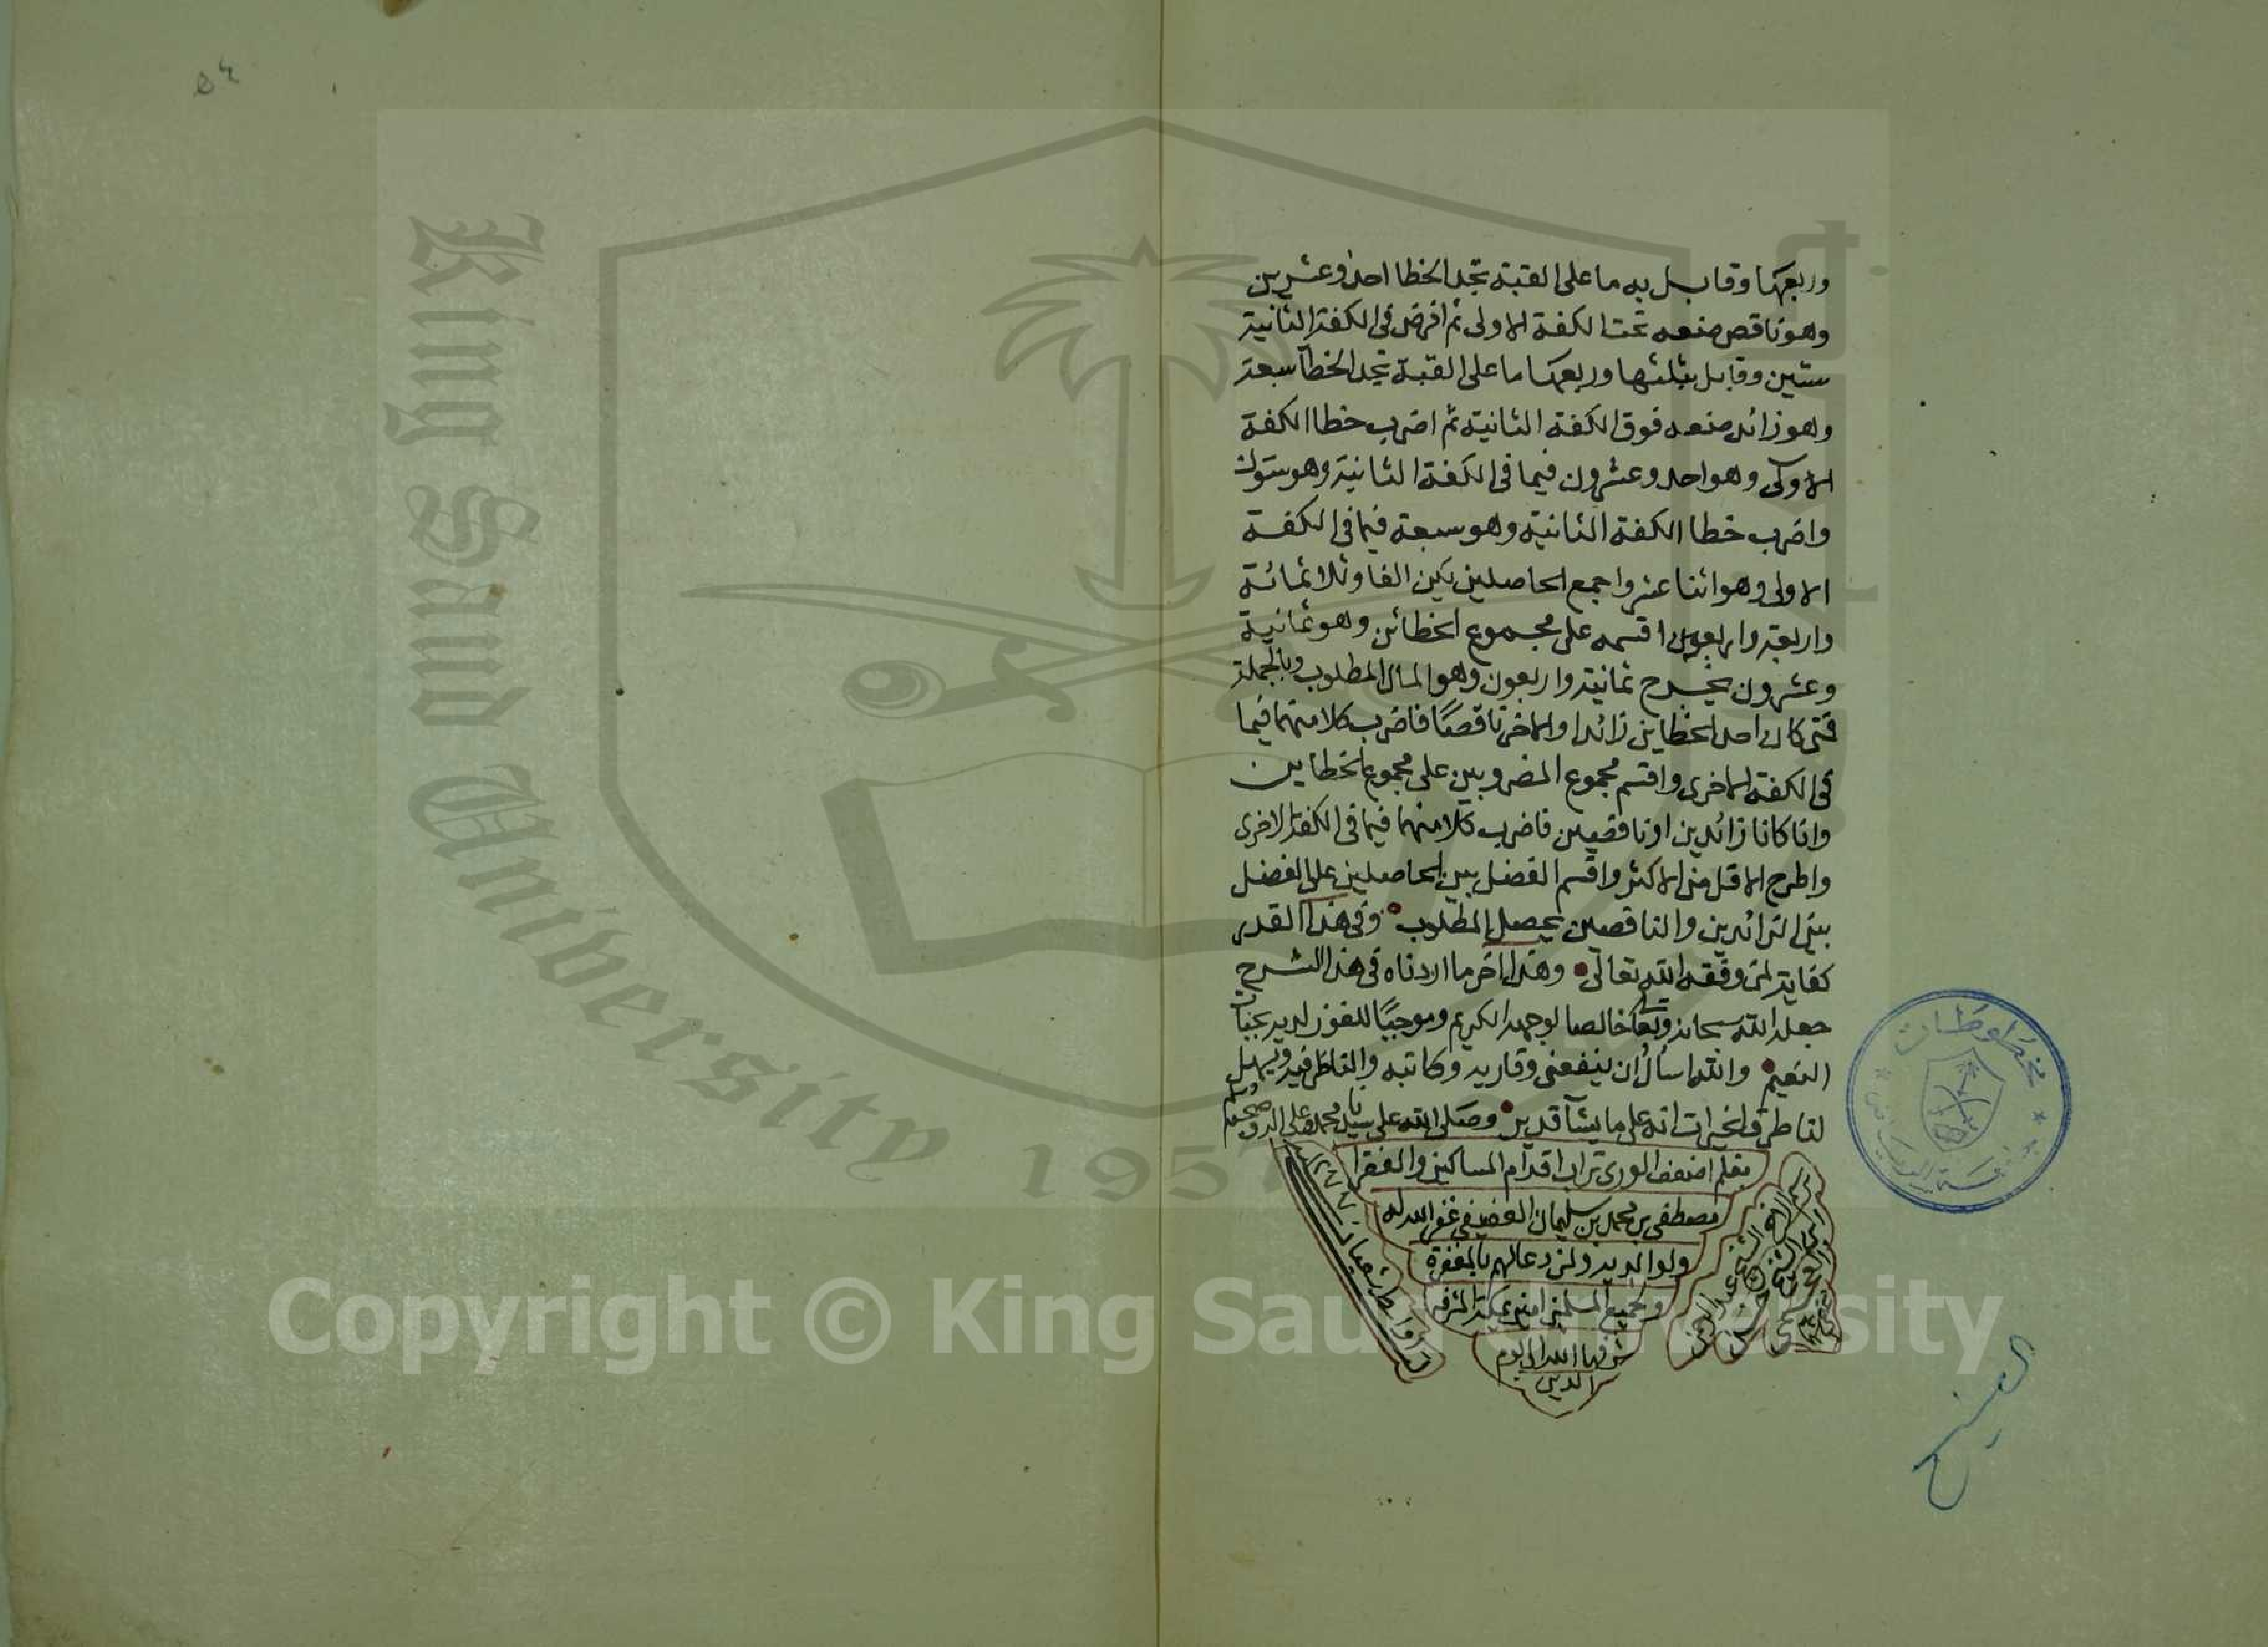 وربعها وقابل به ما على القبة تجد الخطا احد وعشرين
وهو ناقص ضعه تحت الكفة الاولى ثم افرض في الكفة الثانية
ستين وقابل بثلثها وربعها ما على القبة تجد الخطا سبعة
وهو زائد ضعه فوق الكفة الثانية ثم اضرب خطا الكفة
الاولى وهو احد وعشرون فيما في الكفة الثانية وهو ستون
واضرب خطا الكفة الثانية وهو سبعة فيما في الكفة
الاولى وهو اثنا عشر واجمع الحاصلين يكن الفا وثلاثمائة
واربعة واربعون اقسمه على مجموع الخطائن وهو ثمانية
وعشرون يخرج ثمانية واربعون وهو المال المطلوب وبالجملة
فمتى كان احد الخطاين زائدا والاخر ناقصًا فاضرب كلا منهما فيما
في الكفة الاخرى واقسم مجموع المضروبين على مجموع الخطاين
وانا كانا زائدين او ناقصين فاضرب كلا منهما فيما في الكفة الاخرى
واطرح الاقل من الاكثر واقسم الفضل بين الحاصلين على الفضل
بين الزائدين والناقصين يحصل المطلوب وفي هذا القدر
كفاية لمن وفقه الله تعالى وهذا اخر ما اردناه في هذا الشرح
جعله الله سبحانه وتعا خالصا لوجهه الكريم وموجبًا للفوز لديه بجنات
النعيم والله اسأل ان ينفعني وقاريه وكاتبه والناظر فيه ويسهل
لنا طرق الخيرات انه على ما يشآ قدير وصلى الله على سيدنا محمد وعلى اله وصحبه وسلم
بقلم اضعف الورى تراب اقدام المساكين والفقرا
مصطفى بن محمد بن سليمان العفيفي غفر الله له
ولوالديه ولمن دعا لهم بالمغفرة
ولجميع المسلمين امين بمكة المشرفه
شرفها الله الى يوم
الدين
مخطوطات
King Saud University
1957
Copyright © King Saud University
٥٤